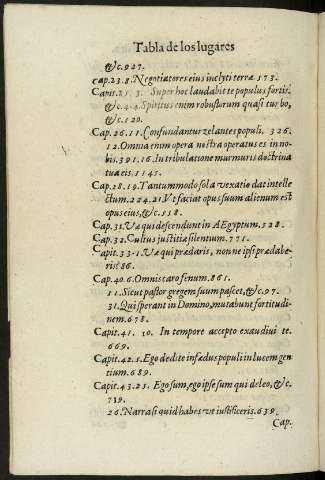 Tabla de los lugares
&c.927.
Cap.23.8. Negotiatores eius inclyti terræ 173.
Capit.25.3. Super hoc laudabit te populus fortis.
&c.4.4. Spiritus enim robustorum quasi turbo,
&c.120.
Cap.26.11. Confundantur zelantes populi. 326.
12. Omnia enim opera nostra operatus es in no-
bis. 391.16. In tribulatione murmuris doctrina
tua eis. 1145.
Cap.28.19. Tantummodo sola vexatio dat intelle
ctum. 224.21. Vt faciat opus suum alienum est
opus eius, &c. 118.
Cap.31. Væ qui descendunt in AEgyptum. 528.
Cap.32. Cultus justitiæ silentium. 771.
Capit.33.1. Væ qui prædaris, nonne ipse prædabe-
ris? 86.
Cap.40.6. Omnis caro fenum. 861.
11. Sicut pastor gregem suum pascet, &c. 97.
31. Qui sperant in Domino, mutabunt fortitudi
nem. 678.
Capit.41. 10. In tempore accepto exaudivi te.
669.
Capit.42.5. Ego dedi te in fœdus populi in lucem gen
tium. 689.
Capit.43.25. Ego sum, ego ipse sum qui deleo, &c.
719.
26. Narra si quid habes vt iustificeris. 639.
Cap.